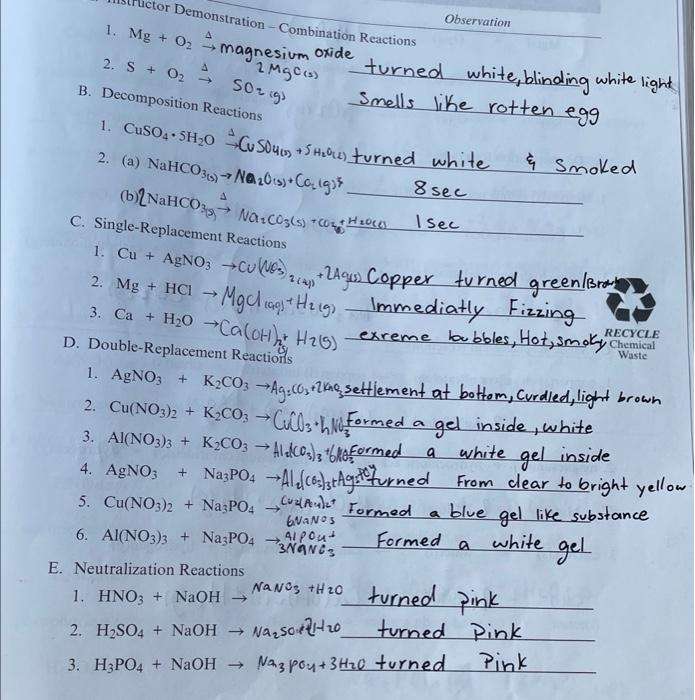 Instructor Demonstration – Combination Reactions Observation
1. Mg + O₂ Δ→ magnesium oxide
2 MgO(s) turned white, blinding white light
2. S + O₂ Δ→ SO₂(g) Smells like rotten egg
B. Decomposition Reactions
1. CuSO₄•5H₂O Δ→ CuSO₄(s) + 5H₂O(g) turned white & Smoked
2. (a) NaHCO₃(s) → Na₂O(s) + CO₂(g) 8 sec
(b) 2 NaHCO₃(s) Δ→ Na₂CO₃(s) + CO₂ + H₂O(l) 1 sec
C. Single-Replacement Reactions
1. Cu + AgNO₃ → Cu(NO₃)₂(aq) + 2Ag(s) Copper turned green/Brown
2. Mg + HCl → MgCl(aq) + H₂(g) Immediatly Fizzing
3. Ca + H₂O → Ca(OH)₂ + H₂(g) exreme bubbles, Hot, smoky
RECYCLE
Chemical
Waste
D. Double-Replacement Reactions
1. AgNO₃ + K₂CO₃ → Ag₂CO₃ + 2KNO₃ settlement at bottom, Curdled, light brown
2. Cu(NO₃)2 + K₂CO₃ → CuCO₃ + Formed a gel inside, white
3. Al(NO₃)3 + K₂CO₃ → Al₂(CO₃)₃ + Formed a white gel inside
4. AgNO₃ + Na₃PO₄ → Al₂(CO₃)₃ + turned From clear to bright yellow
5. Cu(NO₃)2 + Na₃PO₄ → Formed a blue gel like substance
6NaNO₃
6. Al(NO₃)3 + Na₃PO₄ → AlPO₄ + Formed a white gel
3NaNO₃
E. Neutralization Reactions
1. HNO₃ + NaOH → NaNO₃ + H₂O turned pink
2. H₂SO₄ + NaOH → Na₂SO₄ + 2H₂O turned Pink
3. H₃PO₄ + NaOH → Na₃PO₄ + 3H₂O turned Pink